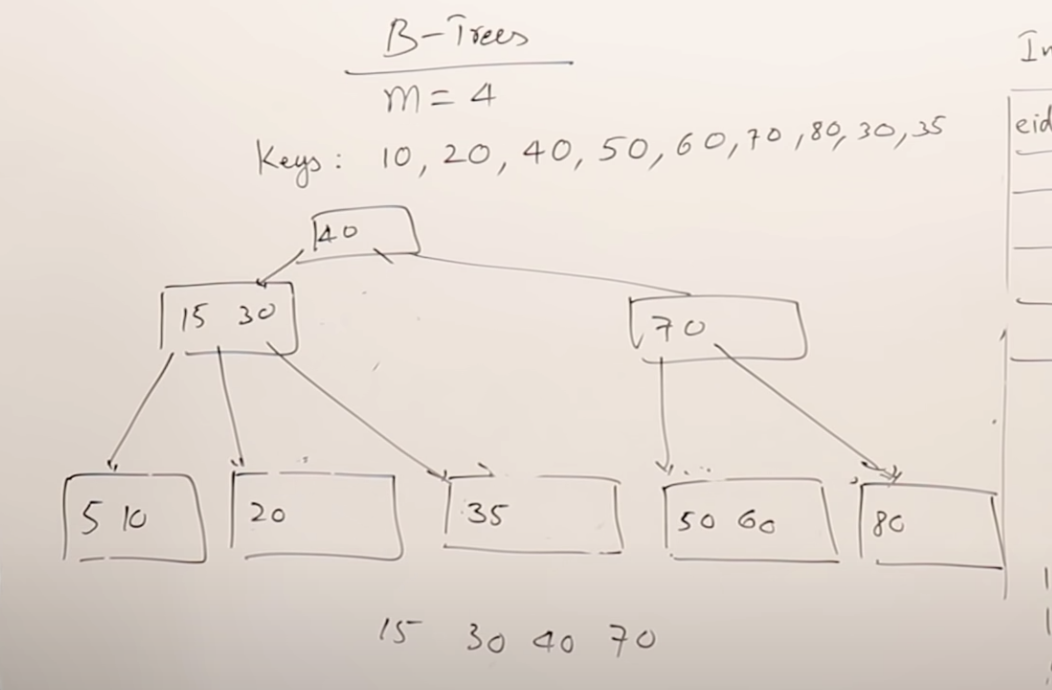 B-Trees
m = 4
Keys: 10, 20, 40, 50, 60, 70, 80, 30, 35
40
15 30
70
5 10
20
35
50 60
80
15 30 40 70
eid